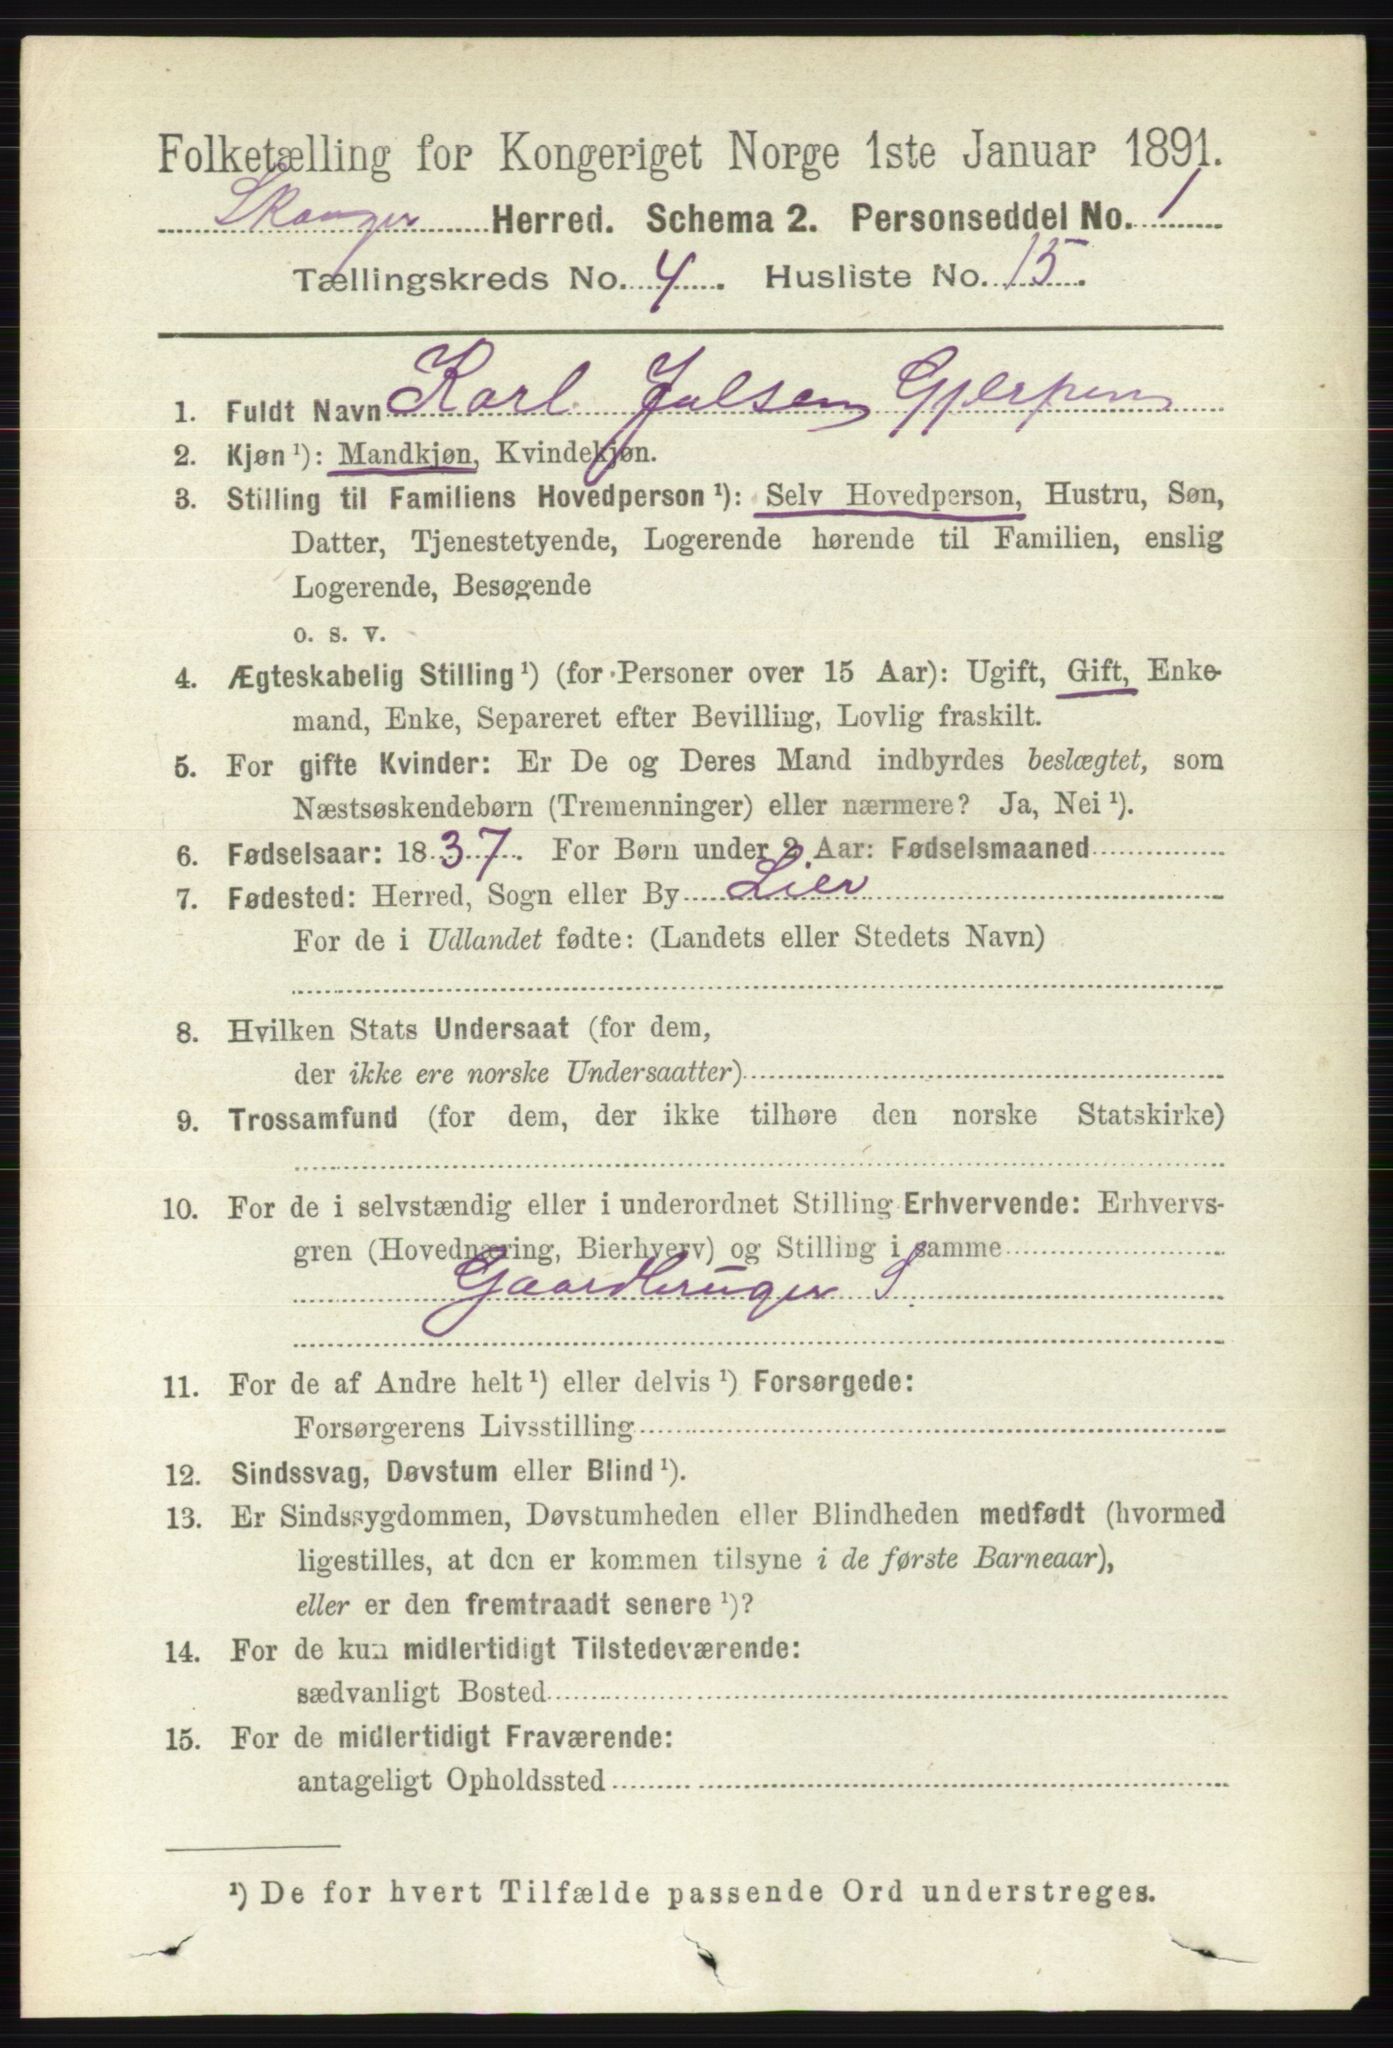 Folketælling for Kongeriget Norge 1ste Januar 1891.
Skouger Herred. Schema 2. Personseddel No. 1
Tællingskreds No. 4. Husliste No. 15.
1. Fuldt Navn Karl Julsen Gjerpen
2. Kjøn ¹): Mandkjøn, Kvindekjøn.
3. Stilling til Familiens Hovedperson ¹): Selv Hovedperson, Hustru, Søn,
Datter, Tjenestetyende, Logerende hørende til Familien, enslig
Logerende, Besøgende
o. s. v.
4. Ægteskabelig Stilling ¹) (for Personer over 15 Aar): Ugift, Gift, Enke-
mand, Enke, Separeret efter Bevilling, Lovlig fraskilt.
5. For gifte Kvinder: Er De og Deres Mand indbyrdes beslægtet, som
Næstsøskendebørn (Tremenninger) eller nærmere? Ja, Nei ¹).
6. Fødselsaar: 1837. For Børn under 2 Aar: Fødselsmaaned
7. Fødested: Herred, Sogn eller By Lier
For de i Udlandet fødte: (Landets eller Stedets Navn)
8. Hvilken Stats Undersaat (for dem,
der ikke ere norske Undersaatter)
9. Trossamfund (for dem, der ikke tilhøre den norske Statskirke)
10. For de i selvstændig eller i underordnet Stilling Erhvervende: Erhvervs-
gren (Hovednæring, Bierhverv) og Stilling i samme
Gaardbruger S
11. For de af Andre helt ¹) eller delvis ¹) Forsørgede:
Forsørgerens Livsstilling
12. Sindssvag, Døvstum eller Blind ¹).
13. Er Sindssygdommen, Døvstumheden eller Blindheden medfødt (hvormed
ligestilles, at den er kommen tilsyne i de første Barneaar),
eller er den fremtraadt senere ¹)?
14. For de kun midlertidigt Tilstedeværende:
sædvanligt Bosted
15. For de midlertidigt Fraværende:
antageligt Opholdssted
¹) De for hvert Tilfælde passende Ord understreges.